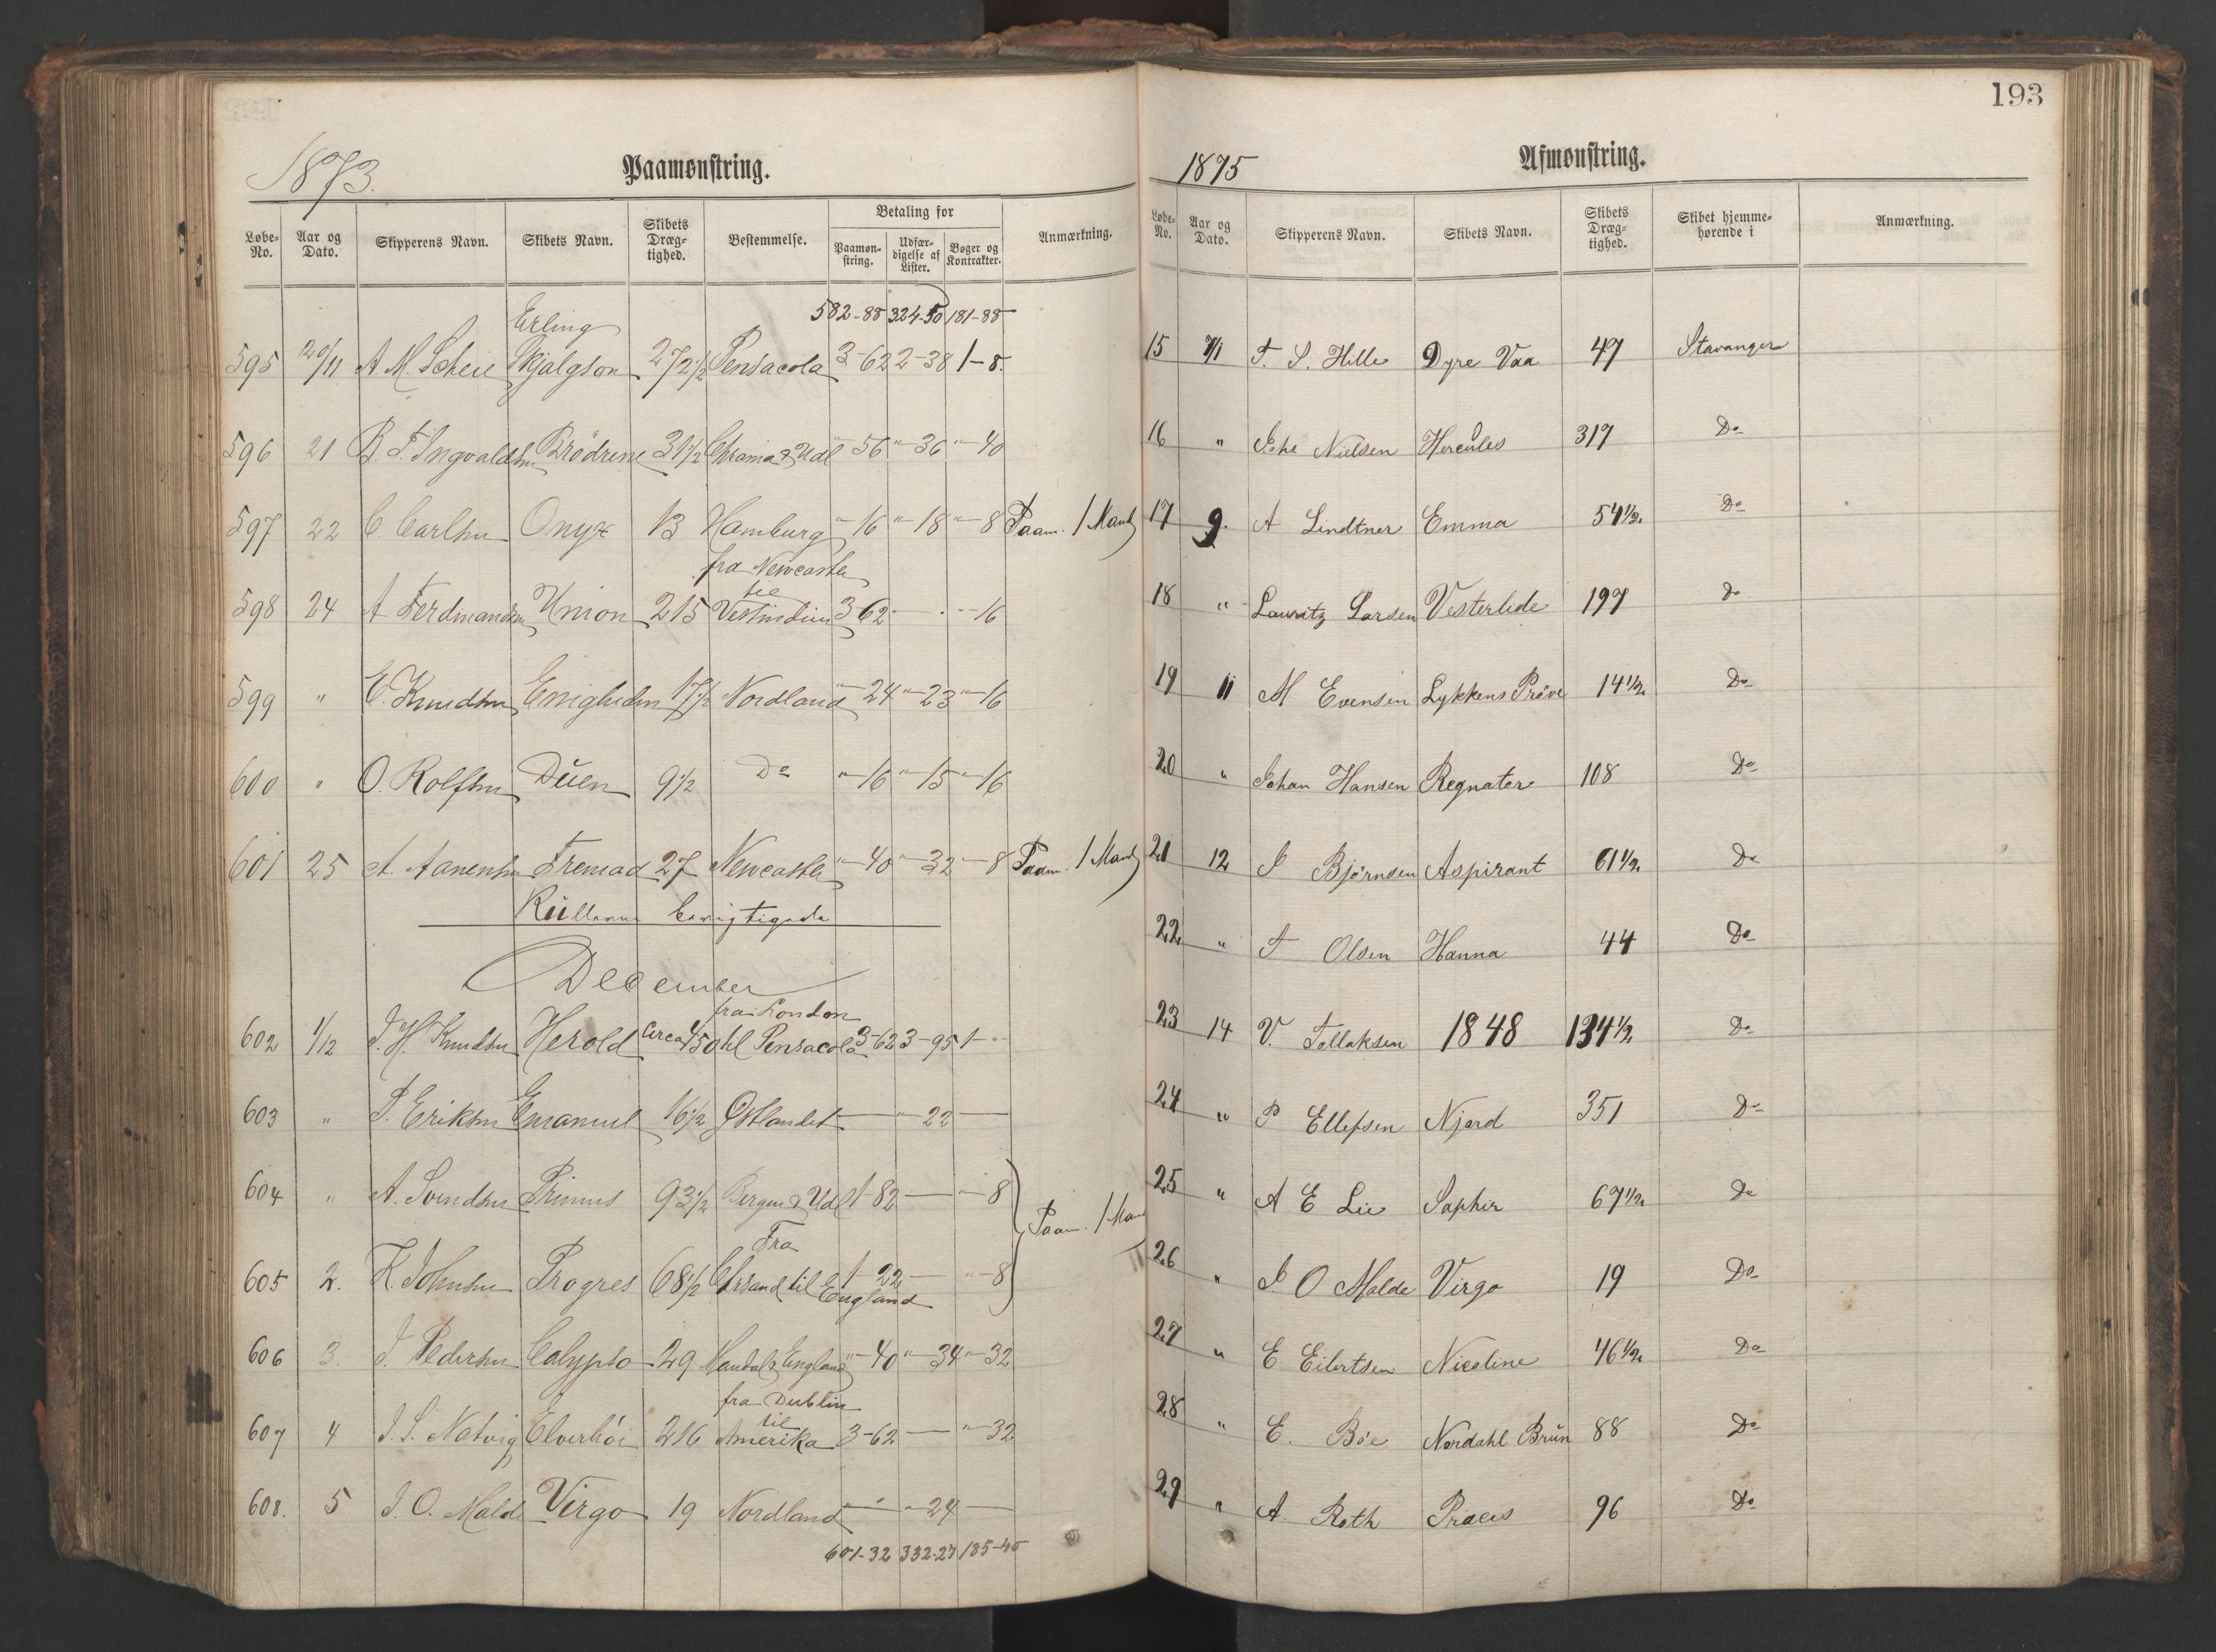 1873.
Paamønstring.
Løbe-No. Aar og Dato. Skipperens Navn. Skibets Navn. Skibets Dræg-tighed. Bestemmelse. Betaling for Paamøn-string. Udfær-digelse af Lister. Bøger og Kontrakter. Anmærkning.
582-88 324-50 181-88
Erling
595 20/11 A. M. Scheie Skjalgson 272 1/2 Pensacola 3-62 2-38 1-8.
596 21 B. T. Ingvaldsen Brödrene 31 1/2 Chrania & Udl "-56 "-36 "-40
597 22 C. Carlsen Onyx 13 Hamburg "-16 "-18 "-8 Paam. 1 Mand
fra Newcastle
til
598 24 A Ferdinandsen Union 215 Vestindien 3 62 - - "-16
599 " E. Knudsen Enigheden 17 1/2 Nordland "-24 "-23 "-16
600 " O. Rolfsen Düen 9 1/2 Do "-16 "-15 "-16
601 25 A. Aanensen Fremad 27 Newcastle "-40 "-32 "-8 Paam. 1 Mand
Rüllerne berigtigede
December
fra London
602 1/12 J. H. Knudsen Herold Circa 450 til Pensacola 3-62 3-95 1-"
603 " P. Eriksen Emanuel 16 1/2 Østlandet — "-22 —
604 " A. Svendsen Primus 93 1/2 Bergen & Udl 1-82 — "-8
Paam. 1 Mand
Fra
605 2. K. Johnsen Progres 68 1/2 Chrsand til England 1-22 — "-8
606 3. J. Pedersen Calypso 29 Mandal & England "-40 "-34 "-32
fra Dublin
til
607 4 J. S. Natvig Elverhöi 216 Amerika 3-62 — "-32
608. 5 J. O. Malde Virgo 19 Nordland — "-24 —
601-32 332-27 185-40
193
1875
Afmønstring.
Løbe-No. Aar og Dato. Skipperens Navn. Skibets Navn. Skibets Dræg-tighed. Skibet hjemme-hørende i Anmærkning.
15 7/1 T. S. Hille Dyre Vaa 47 Stavanger
16 " Johs Nielsen Hercules 317 Do
17 9. A Lindtner Emma 54 1/2 Do
18 " Lauritz Larsen Vesterlide 197 Do
19 11 M Evensen Lykkens Pröve 14 1/2 Do
20 " Johan Hansen Regnator 108 Do
21 12 J Bjørnsen Aspirant 61 1/2 Do
22 " T Olsen Hanna 44 Do
23 14 V. Tollaksen 1848 134 1/2 Do
24 " P Ellefsen Njord 351 Do
25 " A E Lie Saphir 67 1/2 Do
26 " J. O Malde Virgo 19 Do
27 " E Eilertsen Nicoline 46 1/2 Do
28 " E. Bøe Nordahl Brün 88 Do
29 " A. Roth Präcis 96 Do